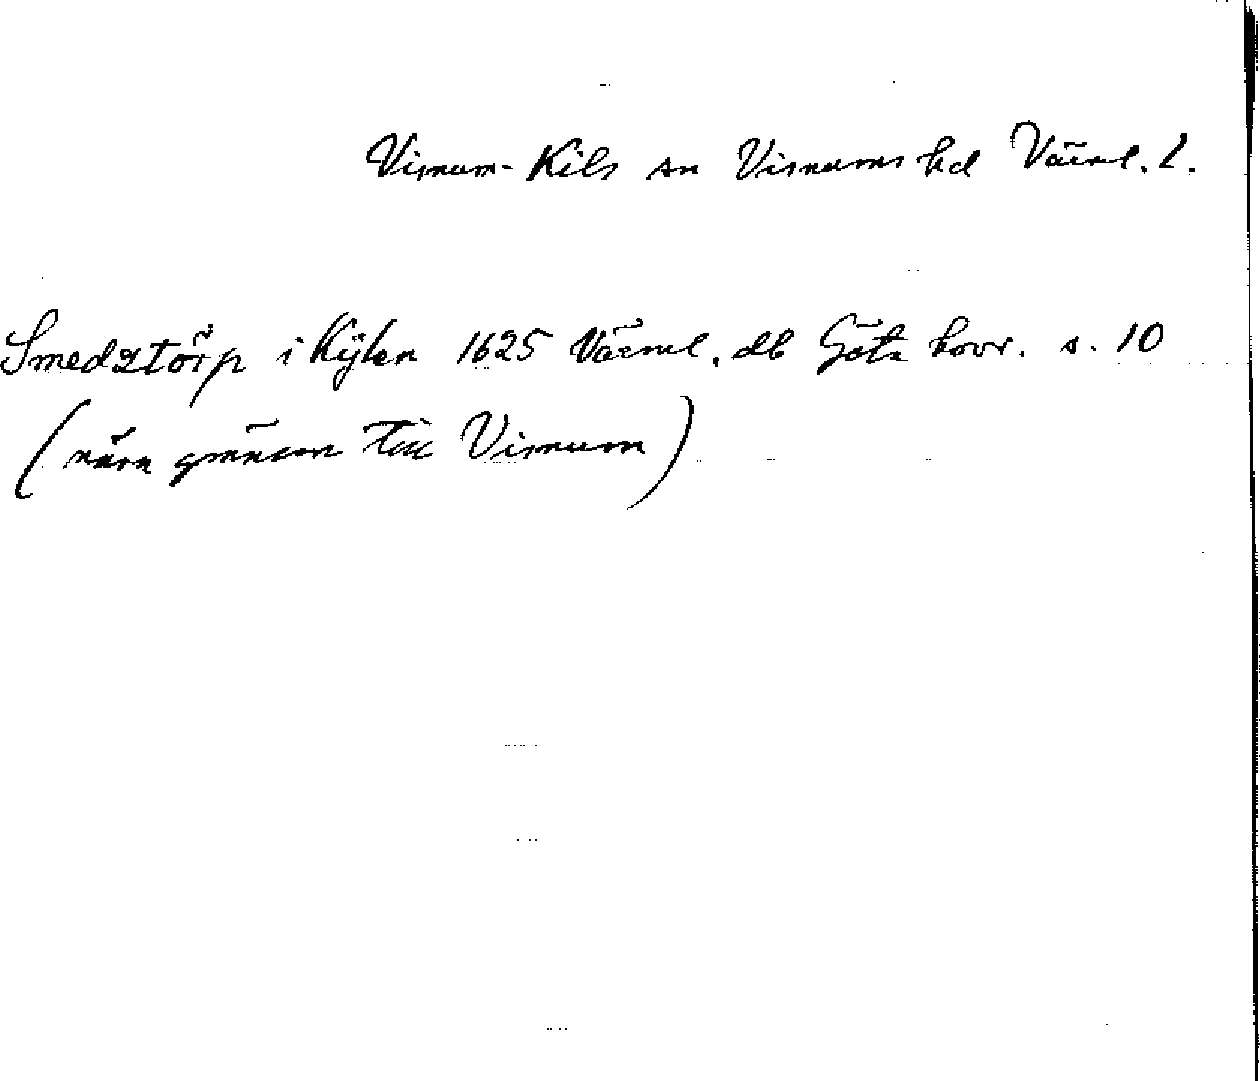 Visnum-Kils sn Visnums hd Värml. l.
Smedztörp i Kÿlen 1625 Värml. db Göta hovr. s. 10
(nära gränsen till Visnum)